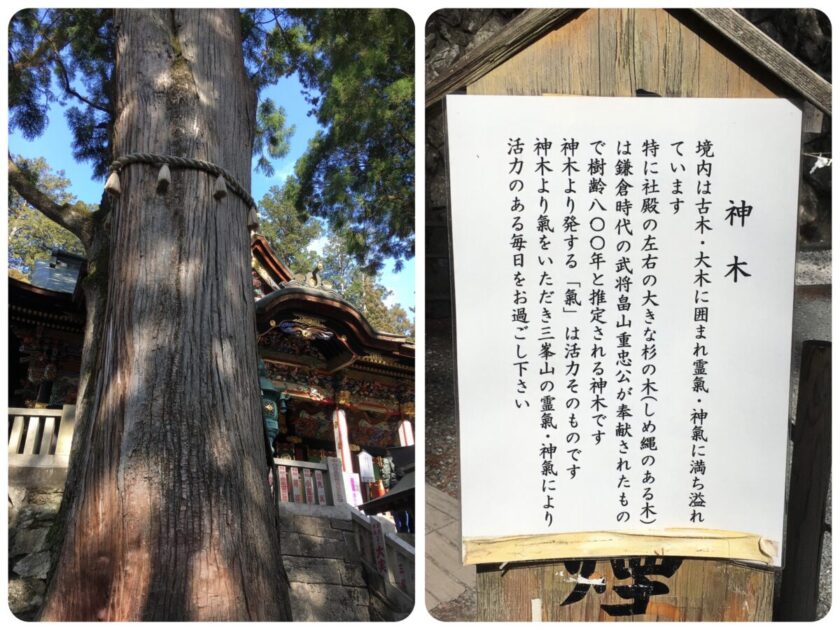 神木
境内は古木・大木に囲まれ霊氣・神氣に満ち溢れ
ています
特に社殿の左右の大きな杉の木(しめ縄のある木)
は鎌倉時代の武将畠山重忠公が奉献されたもの
で樹齢八〇〇年と推定される神木です
神木より発する「氣」は活力そのものです
神木より氣をいただき三峯山の霊氣・神氣により
活力のある毎日をお過ごし下さい